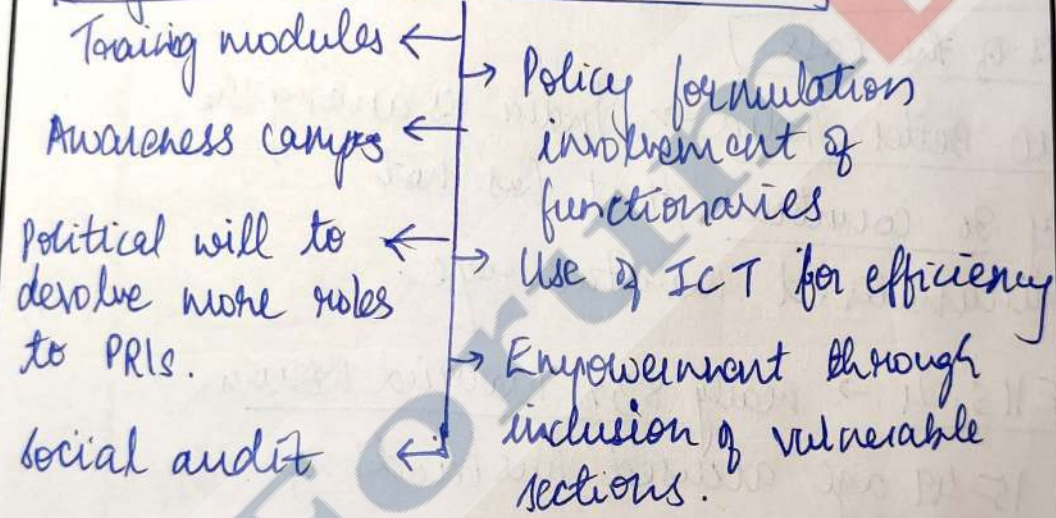 Training modules
Awareness camps
Political will to
devolve more roles
to PRIs.
Social audit
Policy formulation
involvement of
functionaries
Use of ICT for efficiency
Empowerment through
inclusion of vulnerable
sections.
Forum